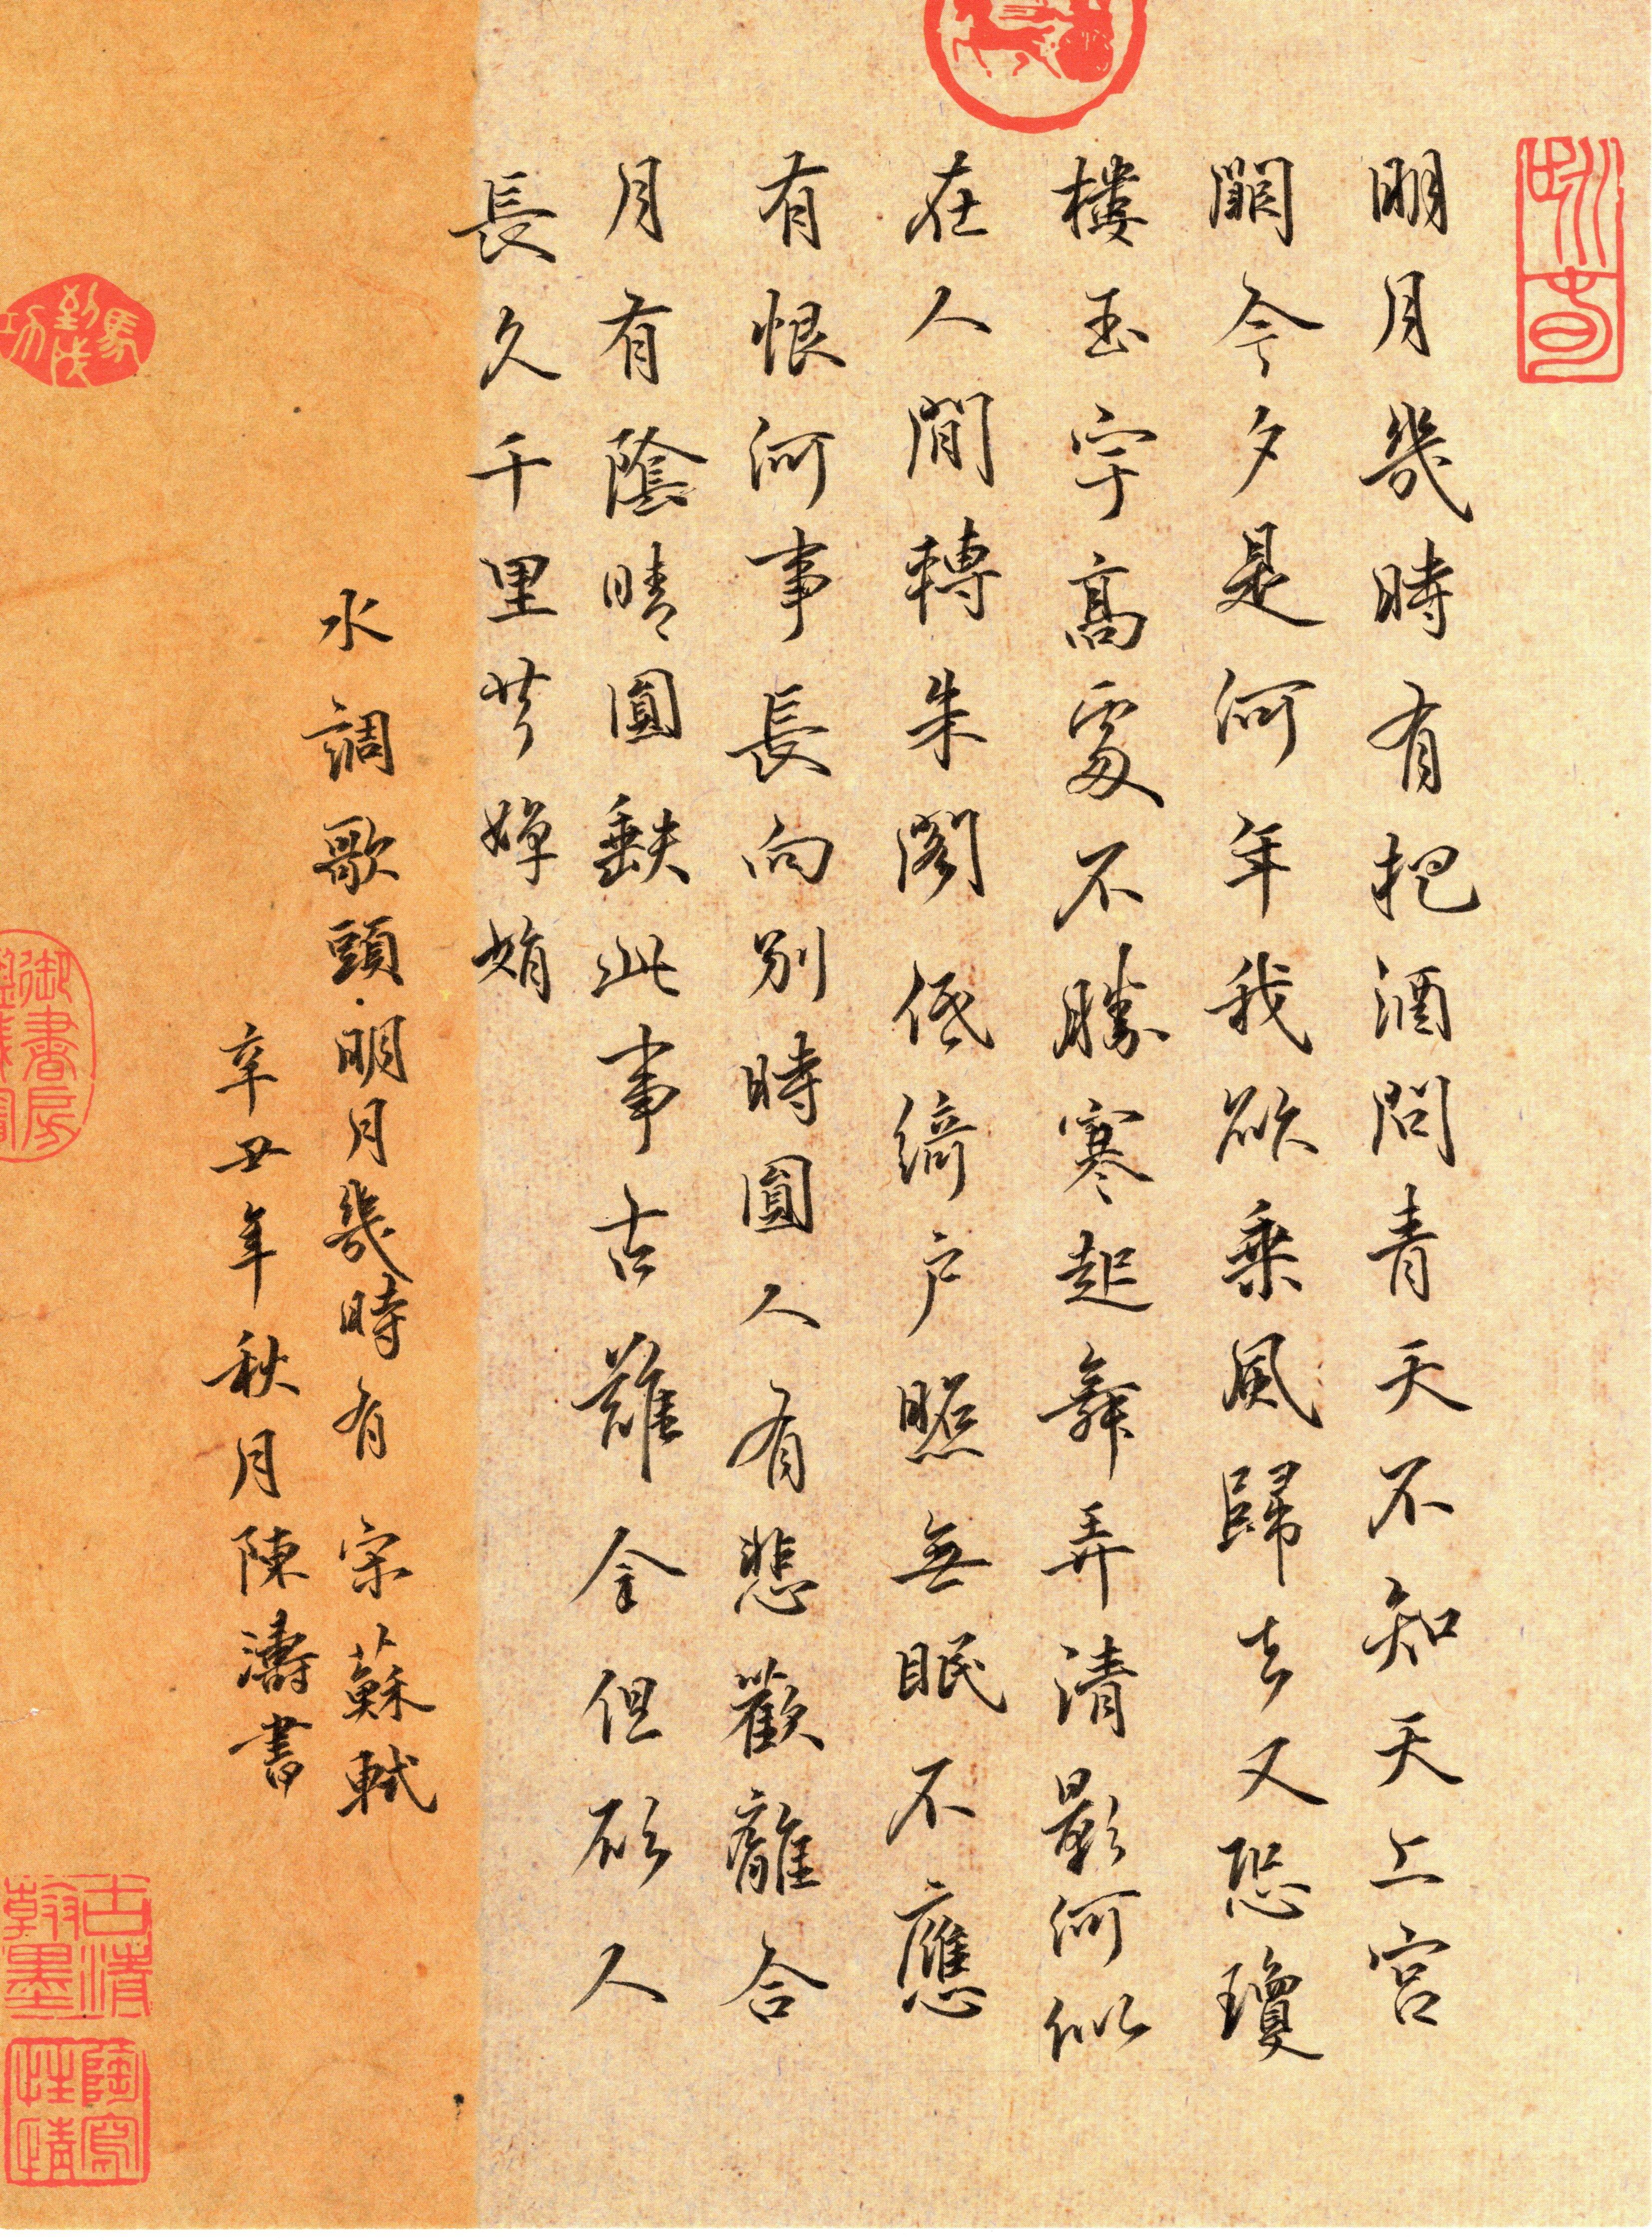 明月幾時有把酒問青天不知天上宮
闕今夕是何年我欲乘風歸去又恐瓊
樓玉宇高處不勝寒起舞弄清影何似
在人間轉朱閣低綺户照無眠不應
有恨何事長向别時圓人有悲歡離合
月有陰晴圓缺此事古難全但願人
長久千里共嬋娟
水調歌頭·明月幾時有 宋 蘇軾
辛丑年秋月陳濤書
御書房
古清
翰墨
陶寫
性情